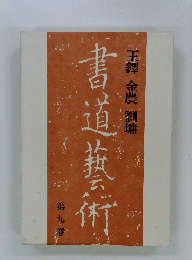 王鐸 金農 劉墉
書道藝術
第九卷